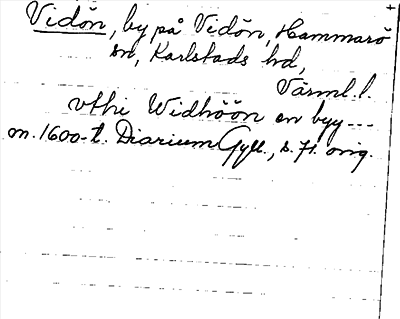 Vidön, by på Vidön, Hammarö
sn, Karlstads hd,
Värml. l.
vthi Widhöön en byy ---
m. 1600-t. Diarium Gyll., s. 71. orig.